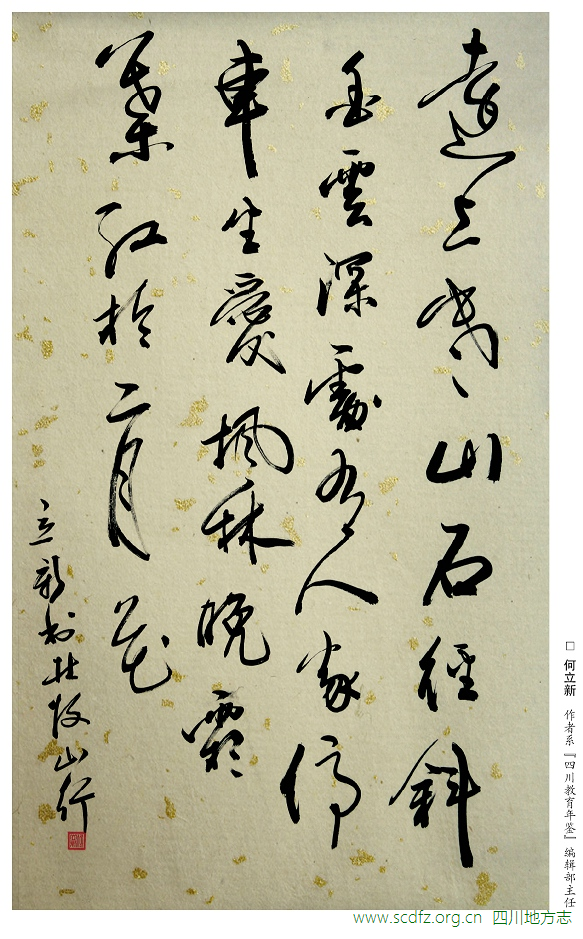 遠上寒山石徑斜
白雲深處有人家停
車坐愛楓林晚霜
葉紅於二月花
立新書杜牧山行
□ 何立新 作者系『四川教育年鉴』编辑部主任
www.scdfz.org.cn 四川地方志